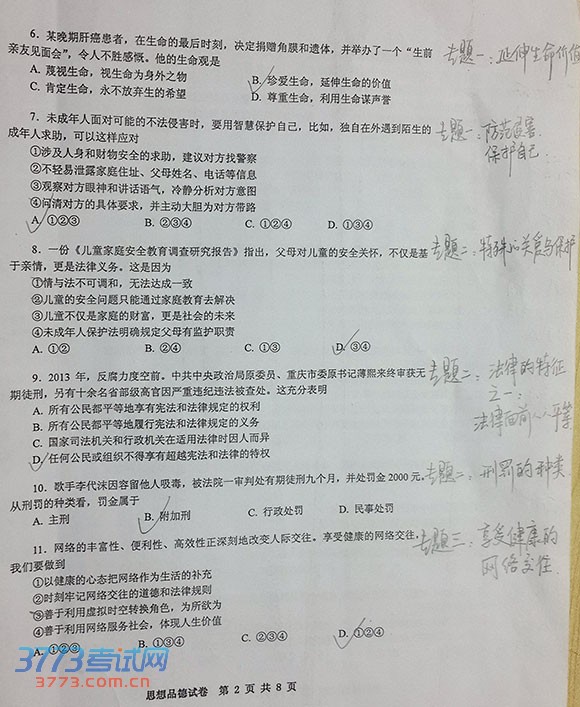 6．某晚期肝癌患者，在生命的最后时刻，决定捐赠角膜和遗体，并举办了一个“生前
亲友见面会”，令人不胜感慨。他的生命观是
A. 蔑视生命，视生命为身外之物
B. 珍爱生命，延伸生命的价值
C. 肯定生命，永不放弃生的希望
D. 尊重生命，利用生命谋声誉
专题一：延伸生命价值
7．未成年人面对可能的不法侵害时，要用智慧保护自己，比如，独自在外遇到陌生的
成年人求助，可以这样应对
①涉及人身和财物安全的求助，建议对方找警察
②不轻易泄露家庭住址、父母姓名、电话等信息
③观察对方眼神和讲话语气，冷静分析对方意图
④问清对方的具体要求，并主动大胆为对方带路
A. ①②③
B. ②③④
C. ①②④
D. ①③④
专题一：防范侵害
保护自己.
8．一份《儿童家庭安全教育调查研究报告》指出，父母对儿童的安全关怀，不仅是基
于亲情，更是法律义务。这是因为
①情与法不可调和，无法达成一致
②儿童的安全问题只能通过家庭教育去解决
③儿童不仅是家庭的财富，更是社会的未来
④未成年人保护法明确规定父母有监护职责
A. ①②
B. ②④
C. ①③
D. ③④
专题二：特殊的关爱与保护
9．2013 年，反腐力度空前。中共中央政治局原委员、重庆市委原书记薄熙来终审获无
期徒刑，另有十余名省部级高官因严重违纪违法被查处。这充分表明
A. 所有公民都平等地享有宪法和法律规定的权利
B. 所有公民都平等地履行宪法和法律规定的义务
C. 国家司法机关和行政机关在适用法律时因人而异
D. 任何公民或组织不得享有超越宪法和法律的特权
专题二：法律的特征
之一：
法律面前～～平等
10．歌手李代沫因容留他人吸毒，被法院一审判处有期徒刑九个月，并处罚金 2000 元。
从刑罚的种类看，罚金属于
A. 主刑
B. 附加刑
C. 行政处罚
D. 民事处罚
专题二：刑罚的种类
11．网络的丰富性、便利性、高效性正深刻地改变人际交往。享受健康的网络交往，
我们要做到
①以健康的心态把网络作为生活的补充
②时刻牢记网络交往的道德和法律规则
③善于利用虚拟时空转换角色，为所欲为
④善于利用网络服务社会，体现人生价值
A. ①②③
B. ①③④
C. ②③④
D. ①②④
专题三：享受健康的
网络交往.
3773考试网
www.3773.com.cn
思想品德试卷 第 2 页 共 8 页